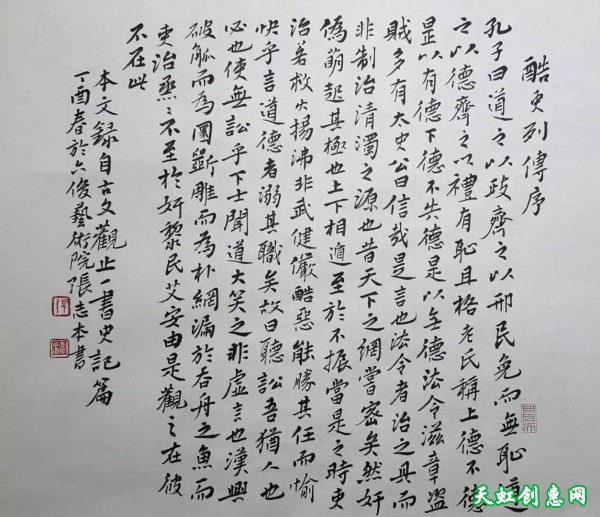 酷吏列傳序
孔子曰道之以政齊之以刑民免而無恥道
之以德齊之以禮有恥且格老氏稱上德不德
是以有德下德不失德是以無德法令滋章盜
賊多有太史公曰信哉是言也法令者治之具而
非制治清濁之源也昔天下之網嘗密矣然奸
偽萌起其極也上下相遁至於不振當是之時吏
治若救火揚沸非武健嚴酷惡能勝其任而愉
快乎言道德者溺其職矣故曰聽訟吾猶人也
必也使無訟乎下士聞道大笑之非虛言也漢興
破觚而為圜斲雕而為朴網漏於吞舟之魚而
吏治烝々不至於奸黎民艾安由是觀之在彼
不在此
本文錄自古文觀止一書史記篇
丁酉春於六俊藝術院張志本書
天虹创惠网